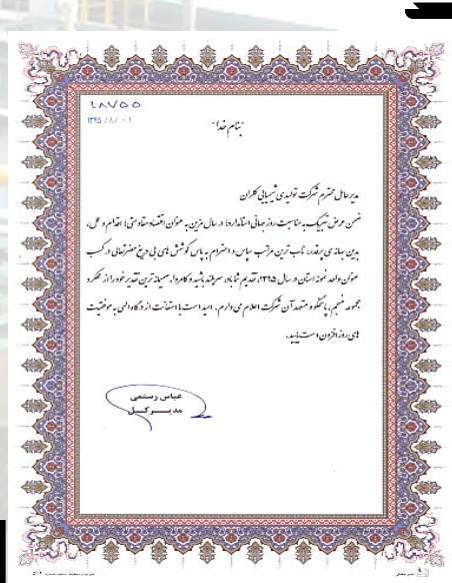 ۱۸۷۵۵
۱۳۹۵/۸/۰۱
بنام خدا
مدیر عامل محترم شرکت تولیدی شیمیایی کلران
ضمن عرض تبریک به مناسبت روز جهانی استاندارد، در سال مزین به عنوان اقتصاد مقاومتی؛ اقدام و عمل،
بدین بهانه ی پرقدر، ناب ترین مراتب سپاس و احترام به پاس کوشش های بی دریغ حضرتعالی در کسب
عنوان واحد نمونه استان در سال ۱۳۹۵، تقدیم شما باد. سربلند باشید و کامروا. صمیمانه ترین تقدیر خود را از عملکرد
مجموعه منسجم، پاسخگو و متعهد آن شرکت اعلام می دارم. امید است با استعانت از درگاه الهی به موفقیت
های روز افزون دست یابید.
عباس رستمی
مدیر کل